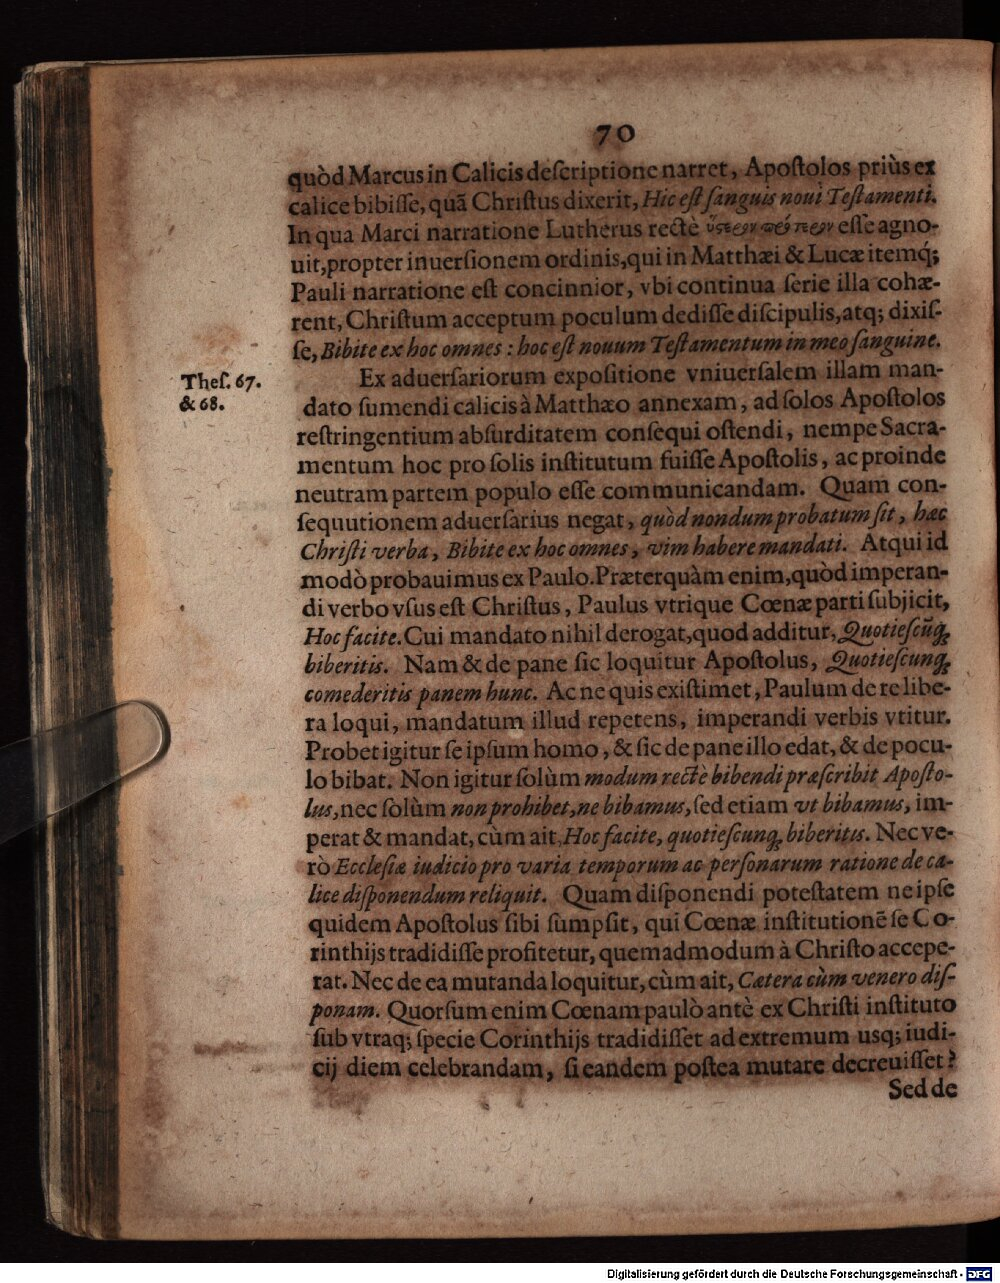 70
quòd Marcus in Calicis deſcriptione narret, Apoſtolos priùs ex
calice bibiſſe, quā Chriſtus dixerit, Hic eſt ſanguis noui Teſtamenti.
In qua Marci narratione Lutherus rectè ὕστερον πρότερον eſſe agno-
uit, propter inuerſionem ordinis, qui in Matthæi & Lucæ itemq́;
Pauli narratione eſt concinnior, vbi continua ſerie illa cohæ-
rent, Chriſtum acceptum poculum dediſſe diſcipulis, atq; dixiſ-
ſe, Bibite ex hoc omnes: hoc eſt nouum Teſtamentum in meo ſanguine.
Theſ. 67.
& 68.
Ex aduerſariorum expoſitione vniuerſalem illam man-
dato ſumendi calicis à Matthæo annexam, ad ſolos Apoſtolos
reſtringentium abſurditatem conſequi oſtendi, nempe Sacra-
mentum hoc pro ſolis inſtitutum fuiſſe Apoſtolis, ac proinde
neutram partem populo eſſe communicandam. Quam con-
ſequutionem aduerſarius negat, quòd nondum probatum ſit, hæc
Chriſti verba, Bibite ex hoc omnes, vim habere mandati. Atqui id
modò probauimus ex Paulo. Præterquàm enim, quòd imperan-
di verbo vſus eſt Chriſtus, Paulus vtrique Cœnæ parti ſubjicit,
Hoc facite. Cui mandato nihil derogat, quod additur, Quotieſcũq;
biberitis. Nam & de pane ſic loquitur Apoſtolus, Quotieſcunq;
comederitis panem hunc. Ac ne quis exiſtimet, Paulum de re libe-
ra loqui, mandatum illud repetens, imperandi verbis vtitur.
Probet igitur ſe ipſum homo, & ſic de pane illo edat, & de pocu-
lo bibat. Non igitur ſolùm modum rectè bibendi præſcribit Apoſto-
lus, nec ſolùm non prohibet, ne bibamus, ſed etiam vt bibamus, im-
perat & mandat, cùm ait, Hoc facite, quotieſcunq; biberitis. Nec ve-
rò Eccleſiæ iudicio pro varia temporum ac perſonarum ratione de ca-
lice diſponendum reliquit. Quam diſponendi poteſtatem ne ipſe
quidem Apoſtolus ſibi ſumpſit, qui Cœnæ inſtitutionē ſe Co-
rinthijs tradidiſſe profitetur, quemadmodum à Chriſto accepe-
rat. Nec de ea mutanda loquitur, cùm ait, Cætera cùm venero diſ-
ponam. Quorſum enim Cœnam paulò antè ex Chriſti inſtituto
ſub vtraq; ſpecie Corinthijs tradidiſſet ad extremum uſq; iudi-
cij diem celebrandam, ſi eandem poſtea mutare decreuiſſet?
Sed de
Digitalisierung gefördert durch die Deutsche Forschungsgemeinschaft - DFG